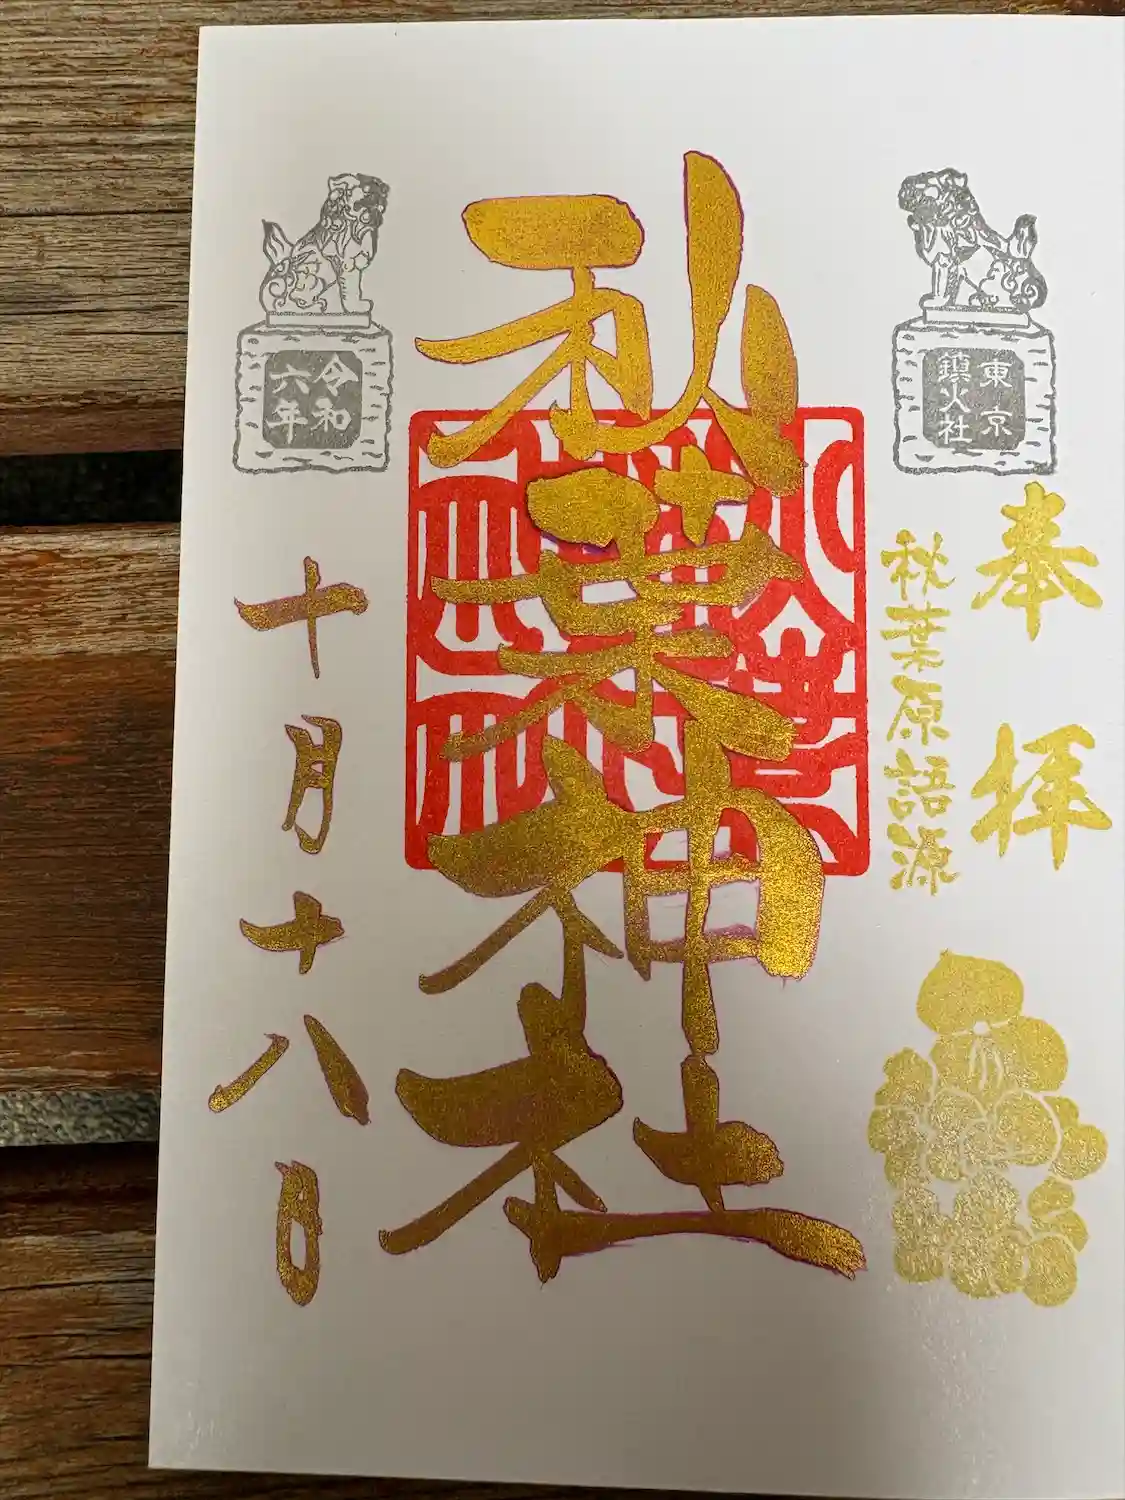 奉拝
秋葉原語源
東京
鎮火社
秋葉神社
令和
六年
十月十八日